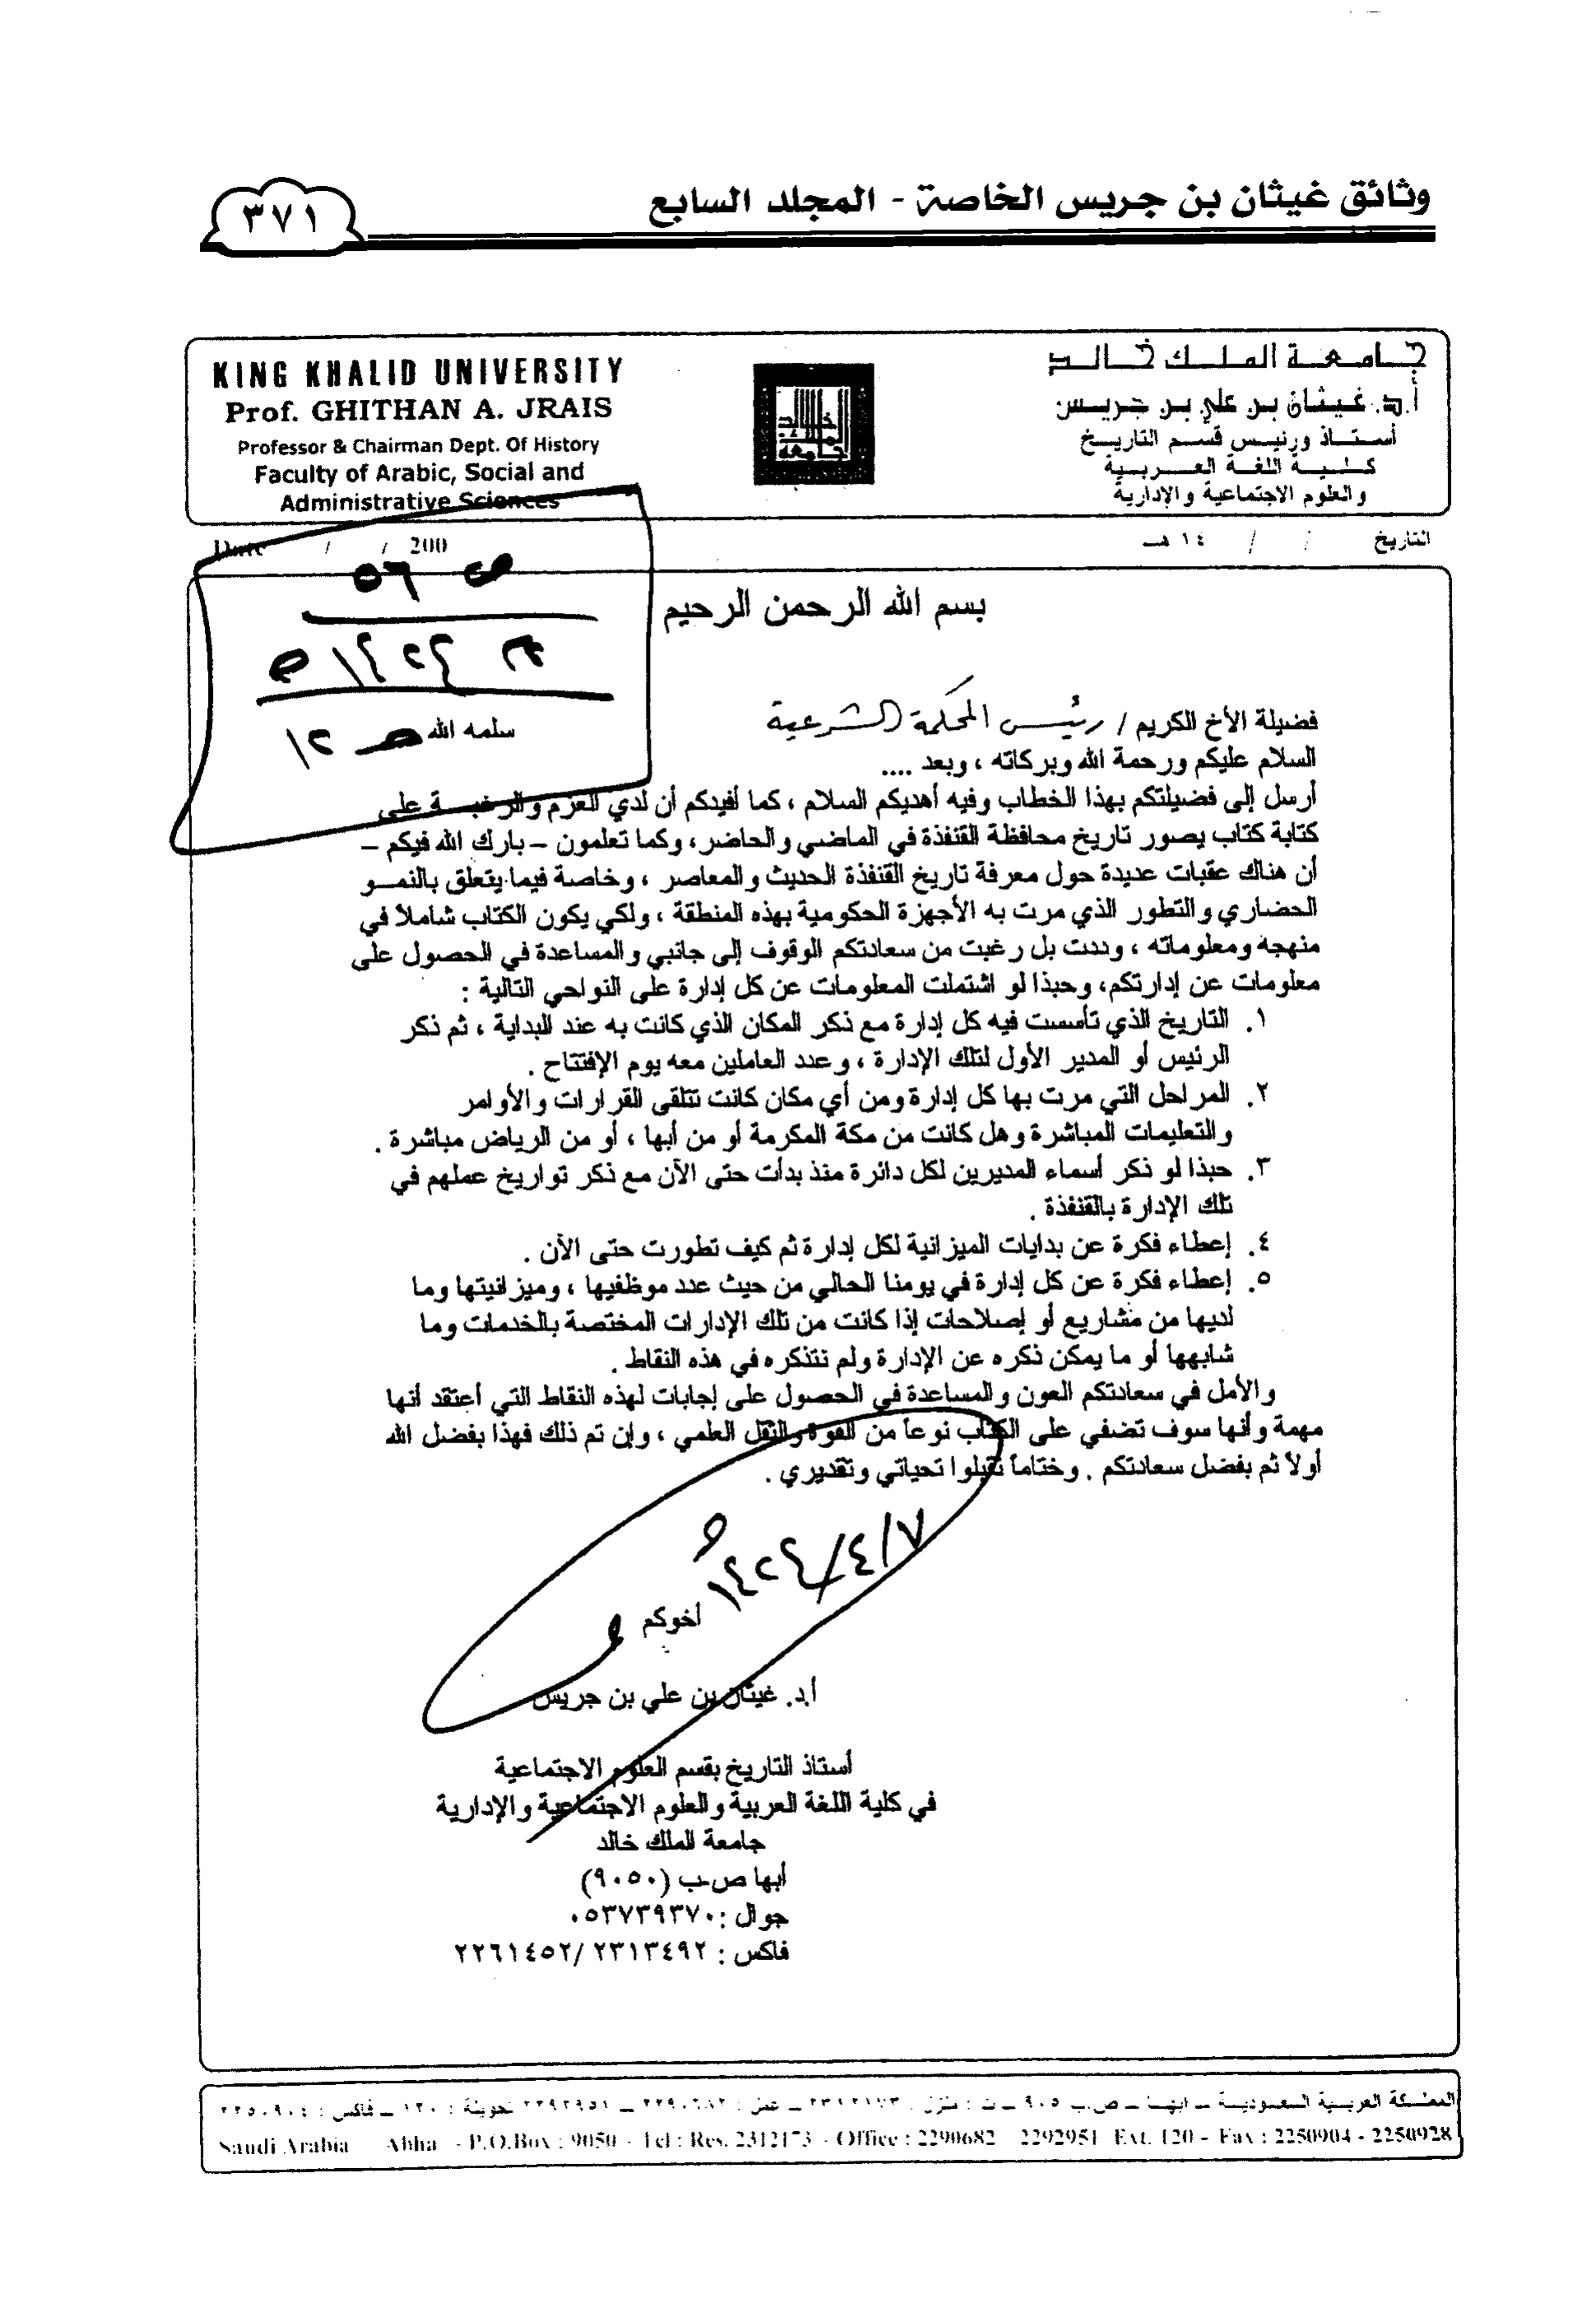 وثائق غيثان بن جريس الخاصة - المجلد السابع
٣٧١
جامعة الملك خالد
أ.د. غيثان بن علي بن جريس
أستاذ ورئيس قسم التاريخ
كلية اللغة العربية
والعلوم الاجتماعية والإدارية
KING KHALID UNIVERSITY
Prof. GHITHAN A. JRAIS
Professor & Chairman Dept. Of History
Faculty of Arabic, Social and
Administrative Sciences
التاريخ / / ١٤ هـ
Date / / 200
ص ٥٦
بسم الله الرحمن الرحيم
فضيلة الأخ الكريم / رئيس المحكمة الشرعية
سلمه الله
السلام عليكم ورحمة الله وبركاته ، وبعد ....
أرسل إلى فضيلتكم بهذا الخطاب وفيه أهديكم السلام ، كما أفيدكم أن لدي العزم والرغبة على
كتابة كتاب يصور تاريخ محافظة القنفذة في الماضي والحاضر، وكما تعلمون – بارك الله فيكم –
أن هناك عقبات عديدة حول معرفة تاريخ القنفذة الحديث والمعاصر ، وخاصة فيما يتعلق بالنمو
الحضاري والتطور الذي مرت به الأجهزة الحكومية بهذه المنطقة ، ولكي يكون الكتاب شاملاً في
منهجه ومعلوماته ، وددت بل رغبت من سعادتكم الوقوف إلى جانبي والمساعدة في الحصول على
معلومات عن إدارتكم، وحبذا لو اشتملت المعلومات عن كل إدارة على النواحي التالية :
١. التاريخ الذي تأسست فيه كل إدارة مع ذكر المكان الذي كانت به عند البداية ، ثم ذكر
الرئيس أو المدير الأول لتلك الإدارة ، وعدد العاملين معه يوم الإفتتاح .
٢. المراحل التي مرت بها كل إدارة ومن أي مكان كانت تتلقى القرارات والأوامر
والتعليمات المباشرة وهل كانت من مكة المكرمة أو من أبها ، أو من الرياض مباشرة .
٣. حبذا لو ذكر أسماء المديرين لكل دائرة منذ بدأت حتى الآن مع ذكر تواريخ عملهم في
تلك الإدارة بالقنفذة .
٤. إعطاء فكرة عن بدايات الميزانية لكل إدارة ثم كيف تطورت حتى الآن .
٥. إعطاء فكرة عن كل إدارة في يومنا الحالي من حيث عدد موظفيها ، وميزانيتها وما
لديها من مشاريع أو إصلاحات إذا كانت من تلك الإدارات المختصة بالخدمات وما
شابهها أو ما يمكن ذكره عن الإدارة ولم نتذكره في هذه النقاط .
والأمل في سعادتكم العون والمساعدة في الحصول على إجابات لهذه النقاط التي أعتقد أنها
مهمة وأنها سوف تضفي على الكتاب نوعاً من القوة والثقل العلمي ، وإن تم ذلك فهذا بفضل الله
أولاً ثم بفضل سعادتكم . وختاماً تقبلوا تحياتي وتقديري .
٧/٤/١٤٢٤هـ
أخوكم
أ.د. غيثان بن علي بن جريس
أستاذ التاريخ بقسم العلوم الاجتماعية
في كلية اللغة العربية والعلوم الاجتماعية والإدارية
جامعة الملك خالد
أبها ص.ب (٩٠٥٠)
جوال : ٠٥٣٧٣٩٣٧٠
فاكس : ٢٣١٣٤٩٢ /٢٢٦١٤٥٢
المملكة العربية السعودية – أبها – ص.ب ٩٠٥ – ت : منزل : ٢٣١٢١٧٣ – عمل : ٢٢٩٠٦٨٢ – ٢٢٩٢٩٥١ تحويلة : ١٢٠ – فاكس : ٢٢٥٠٩٠٤
Saudi Arabia Abha - P.O.Box : 9050 - Tel : Res. 2312173 - Office : 2290682 2292951 Ext. 120 - Fax : 2250904 - 2250928